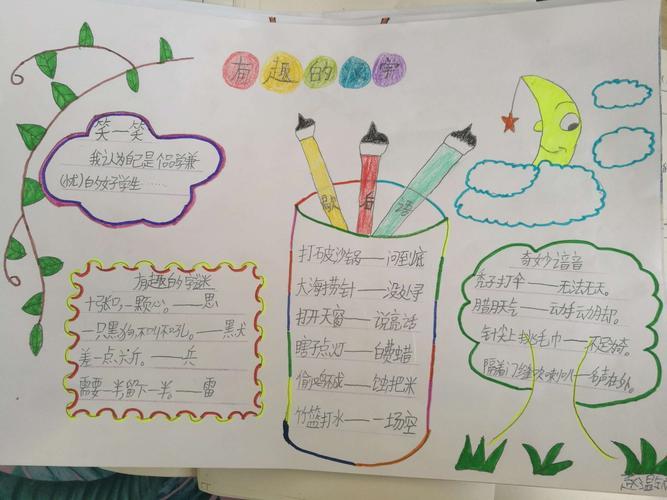 有趣的汉字
笑一笑
我认为自己是品学兼
(忧)的好学生……
有趣的字迷
十张口,一颗心。——思
一只黑狗,不叫不吼。——黑犬
差一点六斤。——兵
需要一半留下一半。——雷
歇后语
打破沙锅——问到底
大海捞针——没处寻
打开天窗——说亮话
瞎子点灯——白费蜡
偷鸡不成——蚀把米
竹篮打水——一场空
奇妙谐音
秃子打伞——无法无天。
腊月天气——动手动脚。
针尖上挑毛巾——不足为奇。
隔着门缝吹喇叭——名声在外。